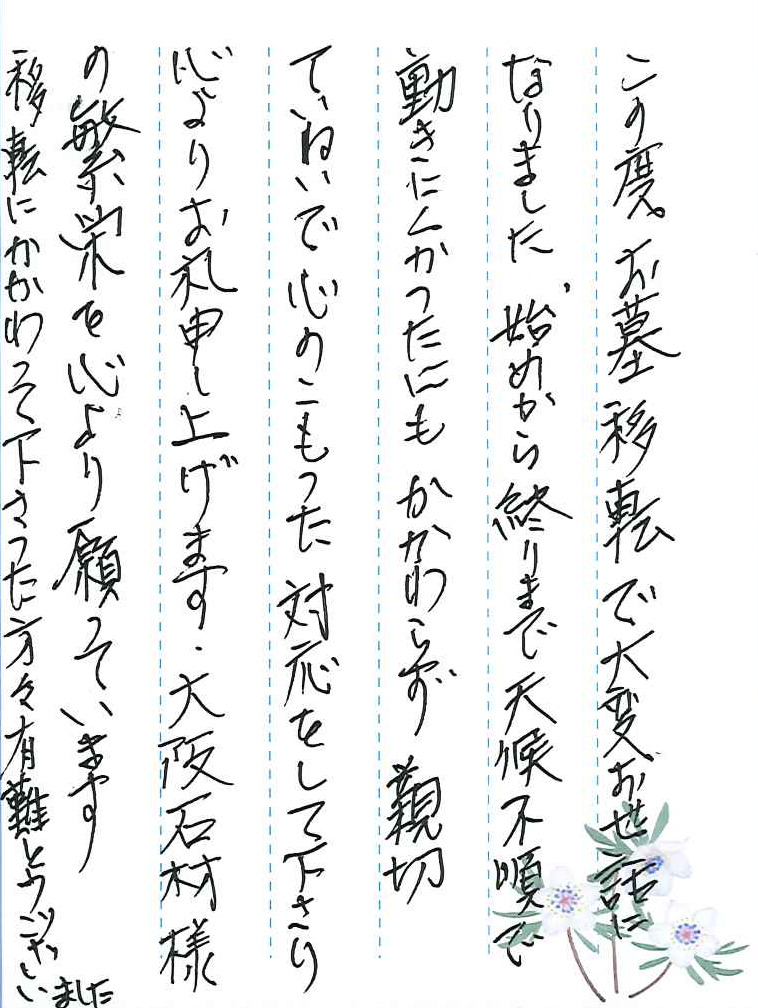 この度、お墓移転で大変お世話に
なりました、始めから終りまで天候不順で
動きにくかったにもかかわらず親切
ていねいで心のこもった対応をして下さり
心よりお礼申し上げます．大阪石材様
の繁栄を心より願っています
移転にかかわって下さった方々有難とうございました